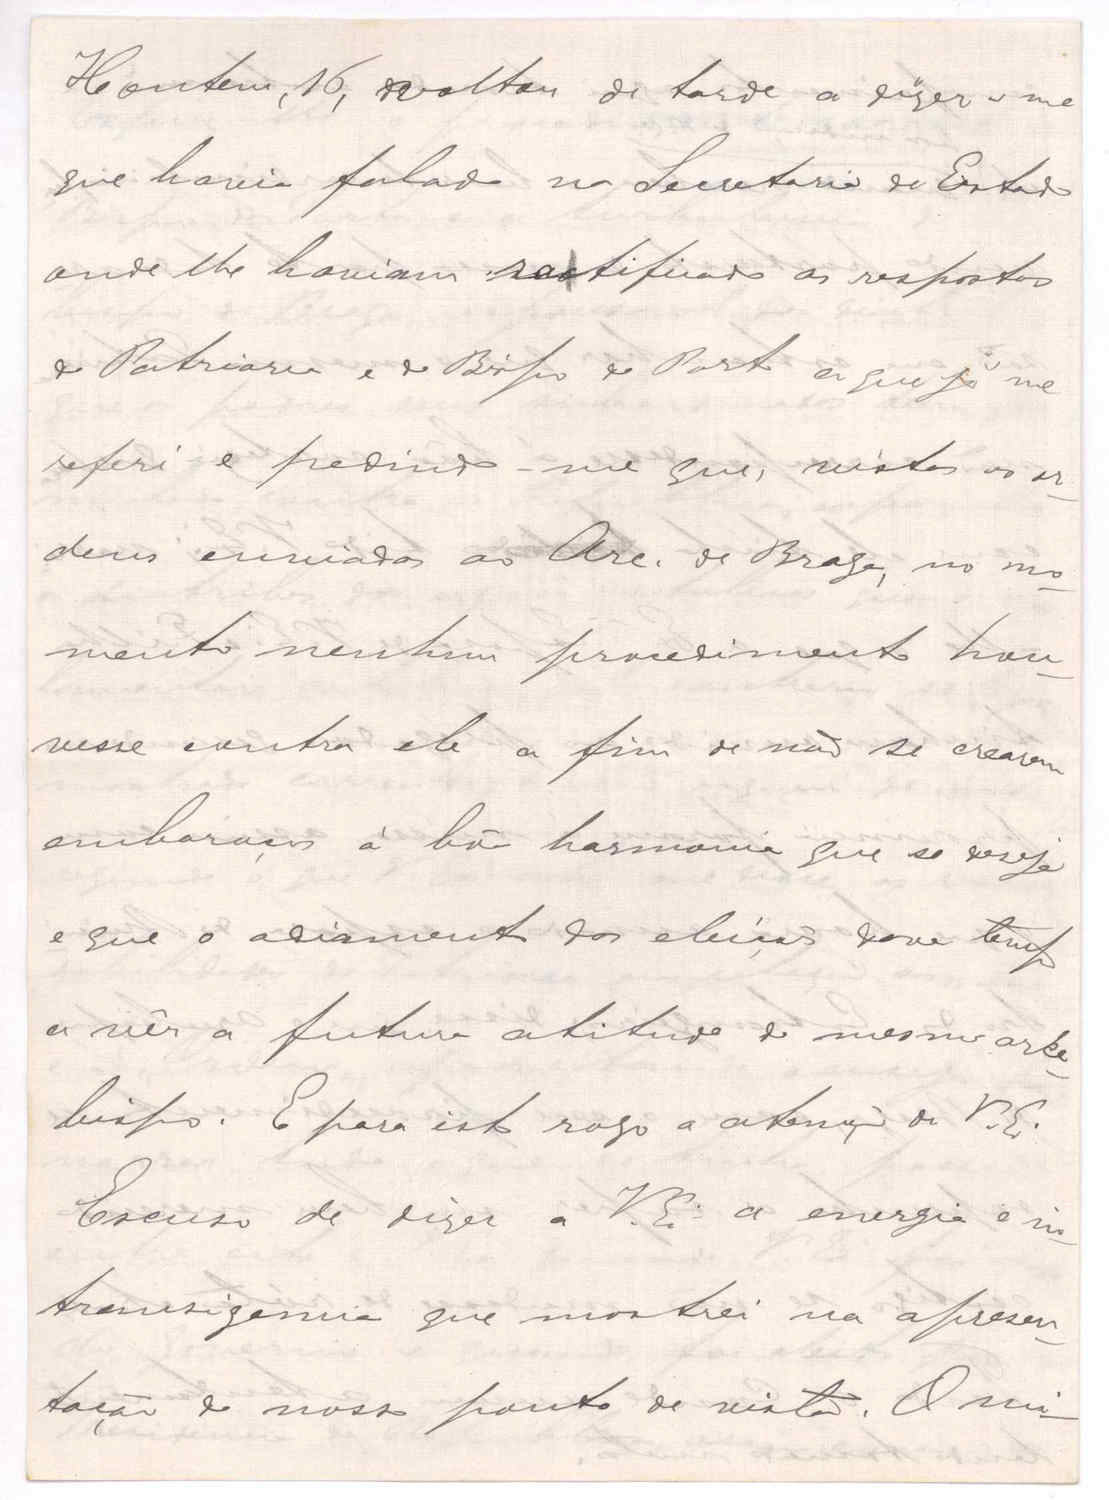 Hontem, 16, voltou de tarde a dizer-me
que havia falado na Secretaria de Estado
onde lhe haviam ractificado as respostas
do Patriarca e do Bispo do Porto a que já me
referi e pedindo-me que, vistas as or-
dens enviadas ao Arc. de Braga, no mo-
mento nenhum procedimento hou-
vesse contra ele a fim de não se crearem
embaraços á bôa harmonia que se deseja
e que o adiamento das eleições dava tempo
a vêr a futura atitude do mesmo arce-
bispo. E para isto rogo a atenção de V. E.
Escuso de dizer a V. E. a energia e in-
transigencia que mostrei na apresen-
tação do nosso ponto de vista. O mi-